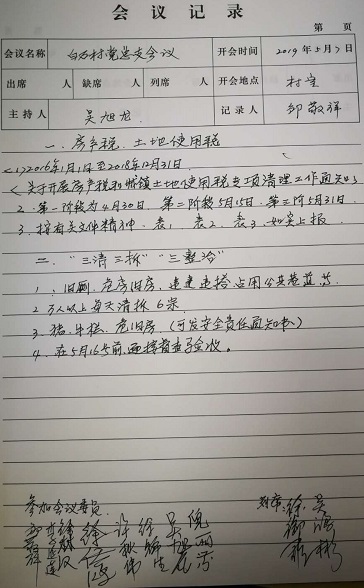 会议记录
第 页
会议名称 白石村党总支会议 开会时间 2019年5月7日
出席 人 缺席 人 列席 人 开会地点 村室
主持人 吴旭龙 记录人 邹敬祥
一、房产税、土地使用税
<1>2016年1月1日至2018年12月31日
<关于开展房产税和城镇土地使用税专项清理工作通知>
2、第一阶段为4月30日 第二阶段5月15日、第三阶5月31日
3、按有关文件精神、表1、表2、表3、如实上报
二、“三清三拆”“三整治”
1、旧厕、危房旧房、违建违搭占用公共巷道等
2、万人以上每天清拆6宗
3、猪、牛栏、危旧房(可发安全责任通知书)
4、在5月16号前迎接省查验收。
参加会议委员:
列席:徐 吴